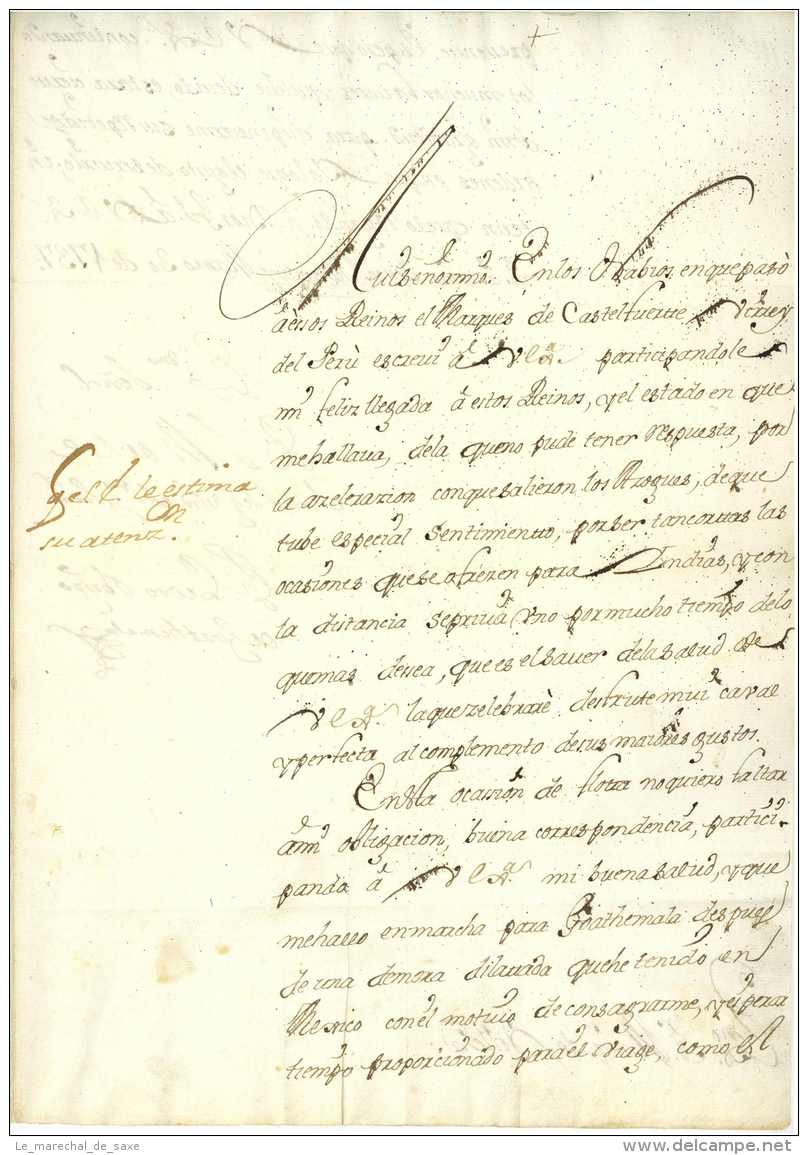 +
Mui Señor mio. En los Nabios, en que pasò
à èssos Reinos el Marques de Castelfuerte Virrey
del Perù escrevi à V E A. participandole
mi feliz llegada à estos Reinos, y el estado en que
me hallava, de la que no pude tener respuesta, por
la azelerazion con que salieron los Azogues, de que
tube especial sentimiento, por ser tan cortas las
ocasiones que se ofrezen para Indias, y con
la distancia se priva uno por mucho tiempo de lo
que mas dessea, que es el saver de la salud de
V E A. la que zelebrarè disfrute mui caval
y perfecta al complemento de sus maiores gustos.
En esta ocassion de flota no quiero faltar
a mi obligacion, buena correspondencia, partici-
pando à V E A. mi buena salud, y que
me hallo en marcha para Goathemala despues
de una demora dilatada que he tenido en
Mexico con el motivo de consagrarme, y esperar
tiempo proporcionado para el viage, como es el
q el C. le estima
en
su atenz.
Le_marechal_de_saxe
delcampe.net